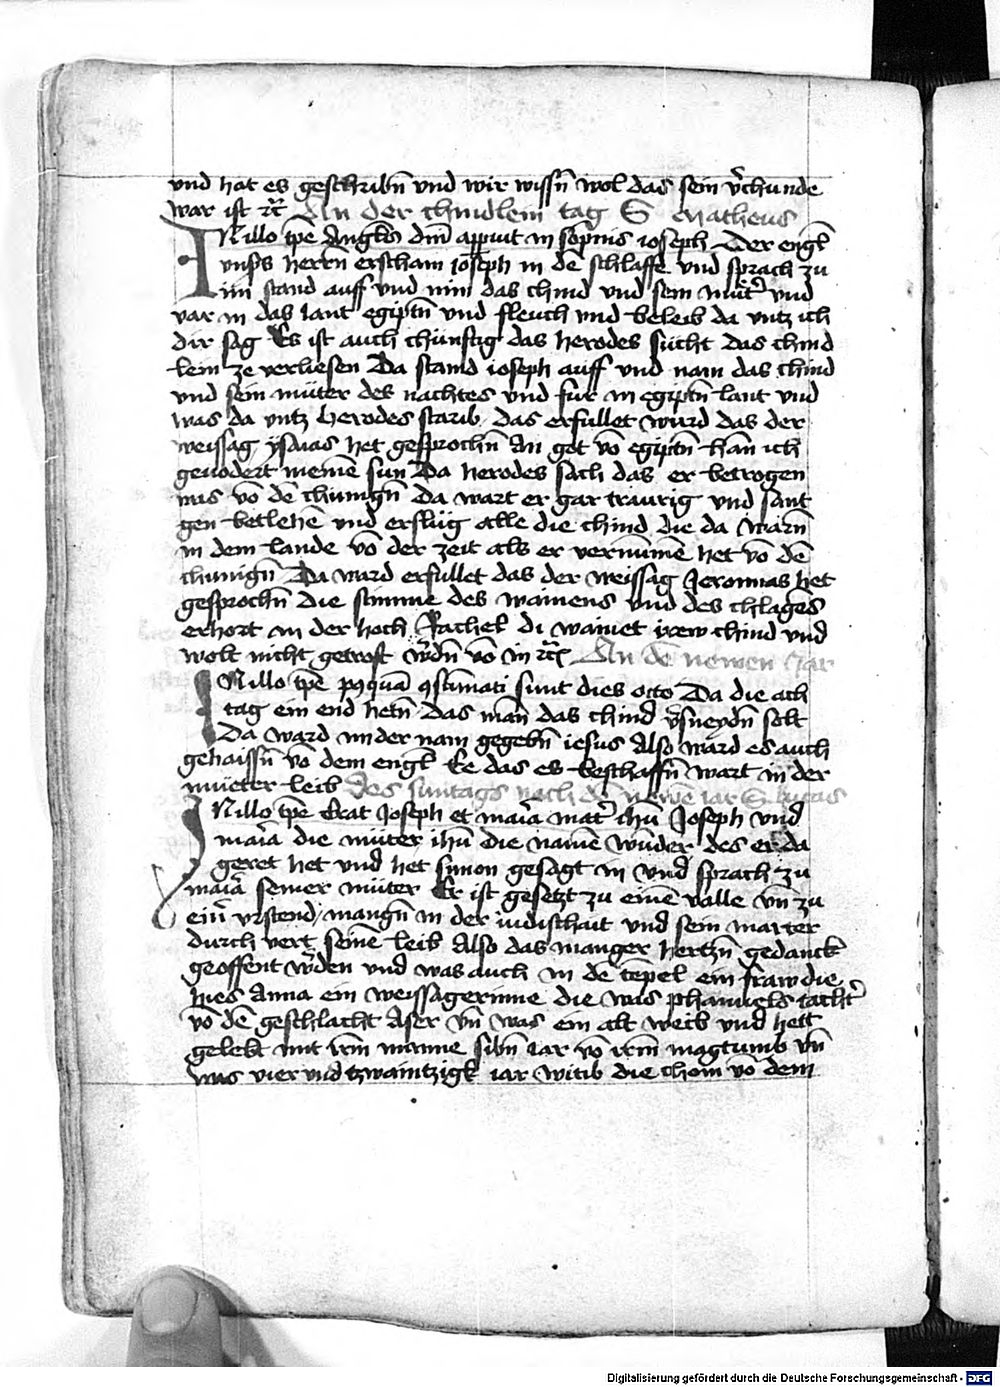 und hat es geschribn̄ und wir wissn̄ wol das sein v̄chunde
war ist ꝛc̄ An der chindlein tag S Matheus
IN illo tp̄e Angl̄s dn̄i apparuit in sōpnis ioseph Der engl̄
unsers herrn erscham ioseph in dē schlaffe und sprach zu
im stand auff und nim das chind und sein mūter und
var in das lant egiptn̄ und fleuch und beleib da untz ich
dir sag Es ist auch chünftig das herodes sücht das chind
lein ze verliesen Da stand ioseph auff und nam das chind
und sein müter des nachtes und fur in egiptn̄ lant und
was da untz herodes starib das erfullet wurd das der
weissag ysaias het gesprochn̄ An got vō egiptn̄ han ich
gevodert meinē sun Da herodes sach das er betrogen
was vō dē chunign̄ Da wart er gar traurig und sant
gen betlehē und erslüg alle die chind die da warn̄
in dem lande vō der zeit als er vernūmē het vō dē
chunign̄ Da ward erfullet das der weissag Jeronias het
gesprochn̄ die stimme des wainens und des chlagēs
erhort in der hoch Rachel di wainet irew chind und
wolt nicht getrost w̄dn̄ vō in ꝛc̄ An dē newen Jar
IN illo tp̄e pꝯquā ꝯsūmati sunt dies octo Da die ach
tag ein end hetn̄ Das man das chind v̄sneydn̄ solt
Da ward im der nam gegebn̄ iesus Also ward es auch
gehaissn̄ vō dem engl̄ Ee das es beschaffn̄ wart in der
müeter leib des suntags nach dē newē iar S. lucas
IN illo tp̄e Erat Joseph et maīa mat̄ ihū Joseph und
maīa die müter ihū die namē wūder des er da
geret het und het simon gesagt in und sprach zu
maīa seiner müter Er ist gesetzt zu einē valle vn̄ zu
ein̄ urstend mangn̄ in der iudischait und sein marter
durch vert seinē leib Also das manger hertzn̄ gedanck
geoffent w̄den und was auch in dē tēpel ein fraw die
hies Anna ein weissagerinne die was phanuels tacht̄
vō dē geschlacht Aser vn̄ was ein alt weib und hett
gelebt mit irm manne sibn̄ iar vō irm magtumb vn̄
was vier und tzwaintzigk iar witib die chom vō dem
Digitalisierung gefördert durch die Deutsche Forschungsgemeinschaft - DFG